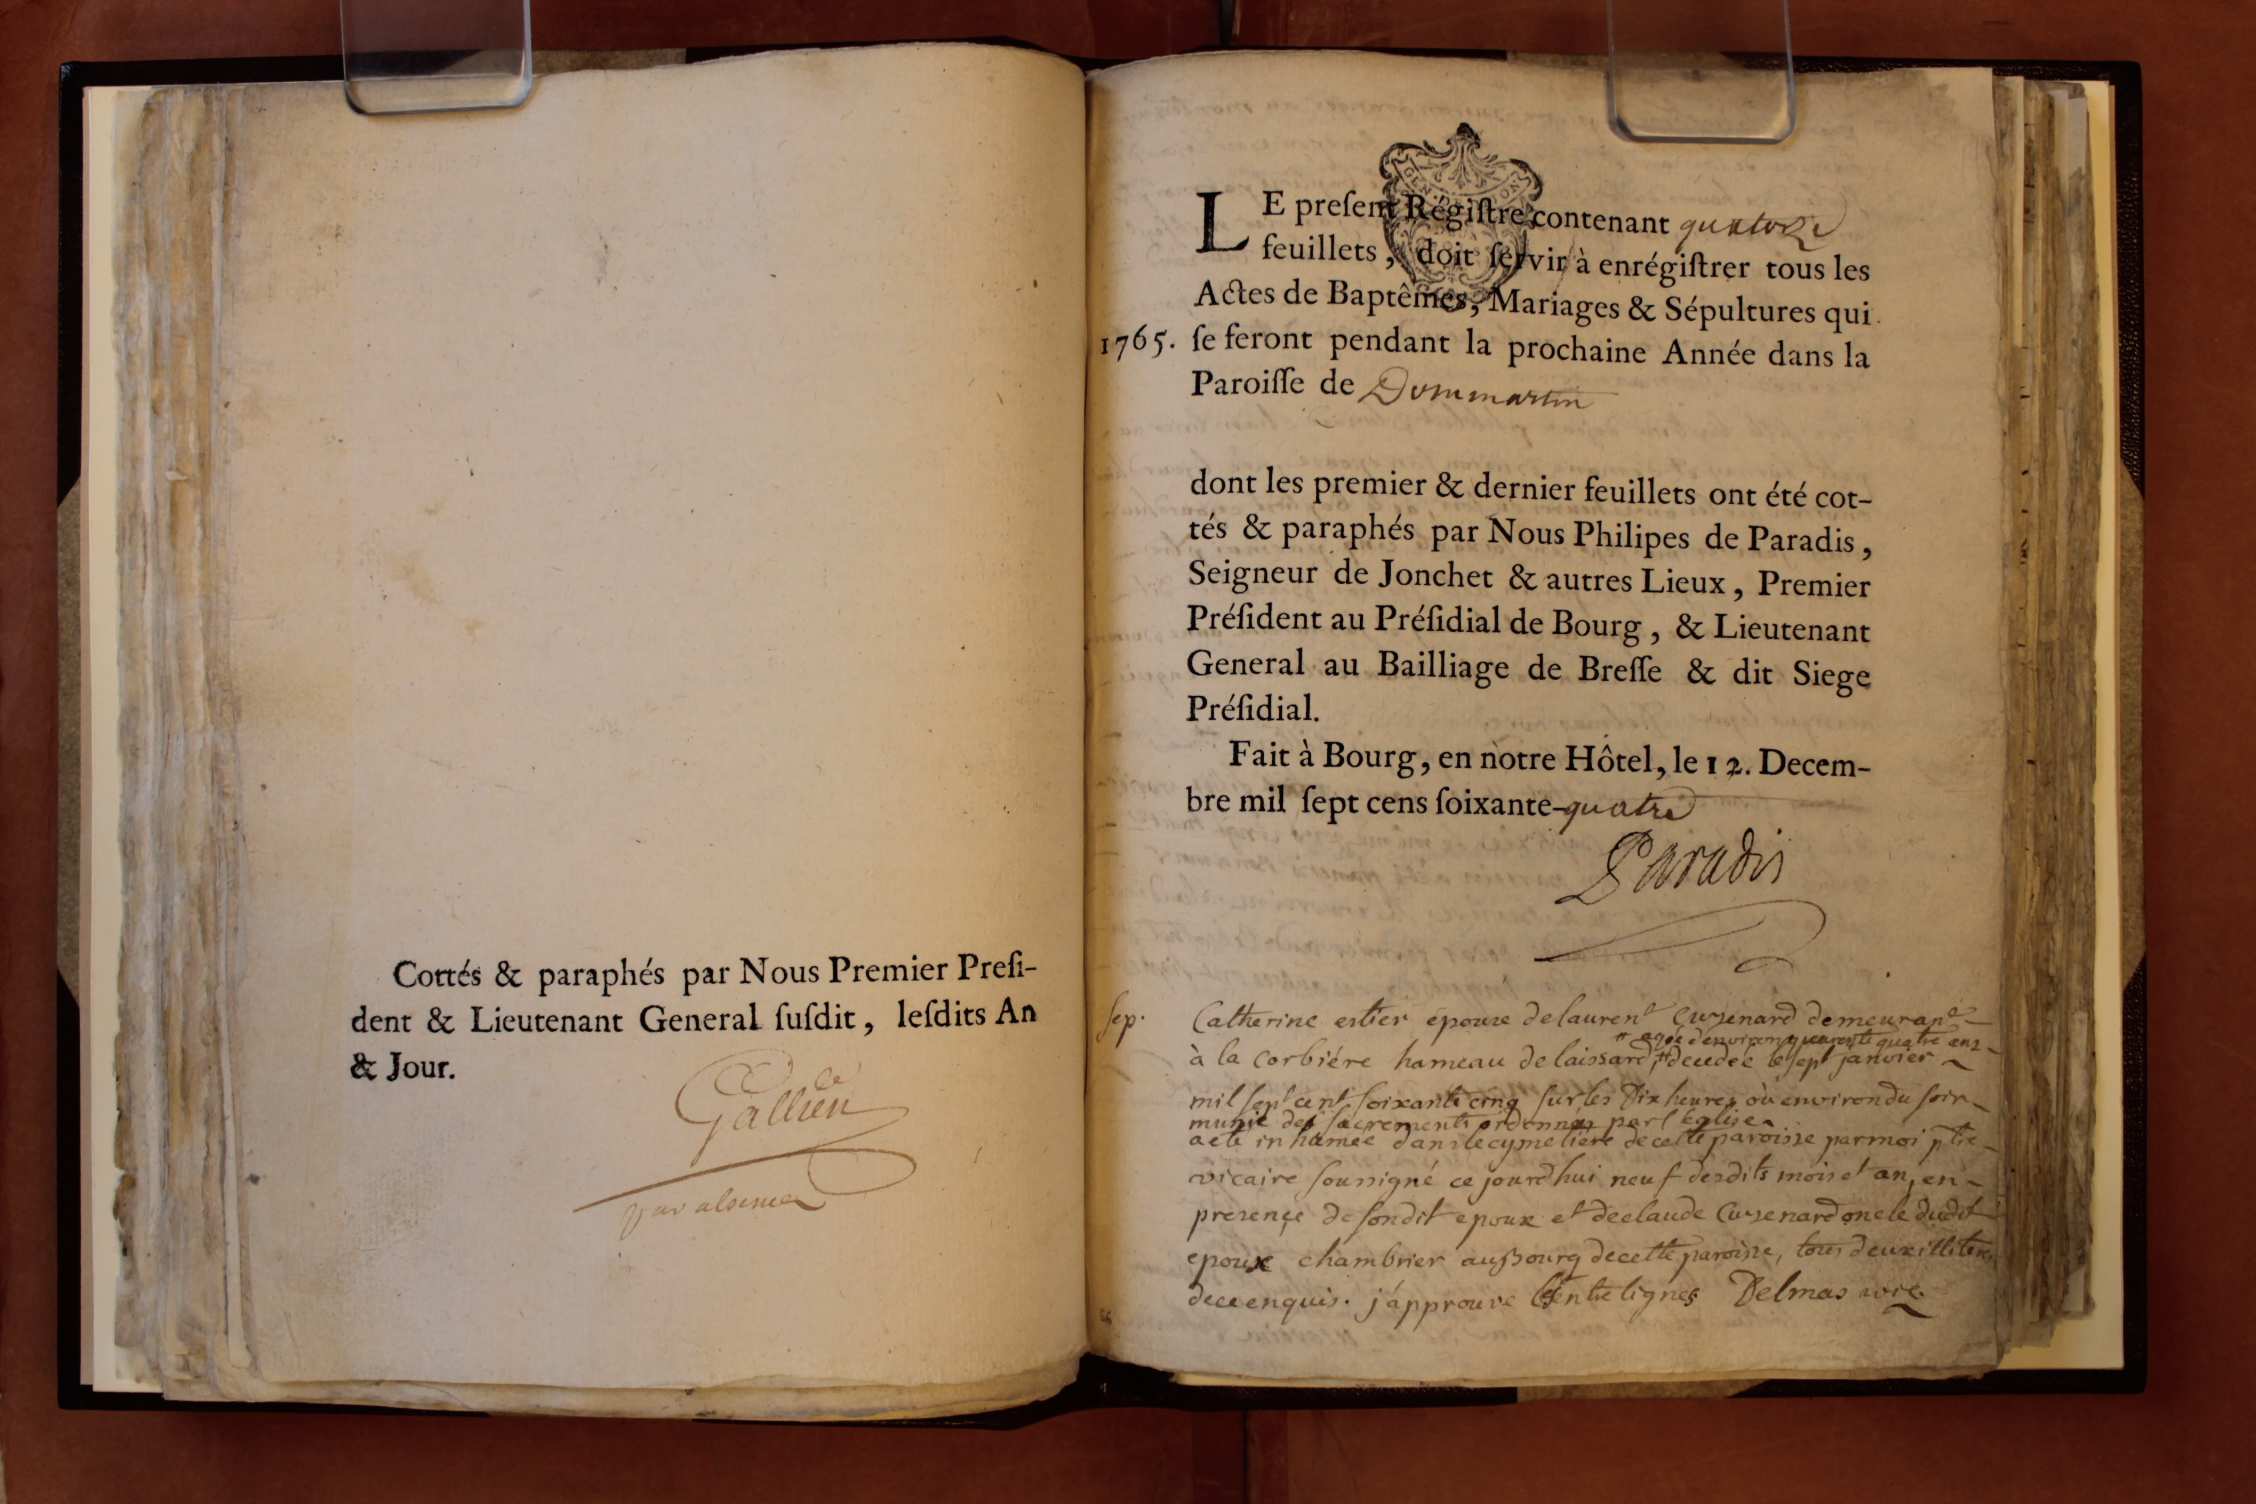 Cottés & paraphés par Nous Premier Presi-
dent & Lieutenant General susdit, lesdits An
& Jour.
Gallien
par absence
LE present Régistre contenant quatorze
feuillets, doit servir à enrégistrer tous les
Actes de Baptêmes, Mariages & Sépultures qui
1765. se feront pendant la prochaine Année dans la
Paroisse de Dommartin
dont les premier & dernier feuillets ont été cot-
tés & paraphés par Nous Philipes de Paradis,
Seigneur de Jonchet & autres Lieux, Premier
Président au Présidial de Bourg, & Lieutenant
General au Bailliage de Bresse & dit Siege
Présidial.
Fait à Bourg, en notre Hôtel, le 12. Decem-
bre mil sept cens soixante-quatre
Paradis
sep. Catherine estier épouse de laurent Cuzenard demeurant
# agée d'environ quarente quatre ans
à la corbiére hameau de laissard, # decedée le sept janvier
mil sept cent soixante cinq sur les Dix heures où environ du soir
munie des sacrements ordonnés par l'église
a eté inhumée dans le cymetiere de cette paroisse par moi ptre
vicaire soussigné ce jourd'hui neuf desdits mois et an, en
presence de sondit epoux et de claude Cuzenard oncle dudit
epoux chambrier au Bourg de cette paroisse, tous deux illiteres
de ce enquis. j'approuve les entre lignes Delmas vic.